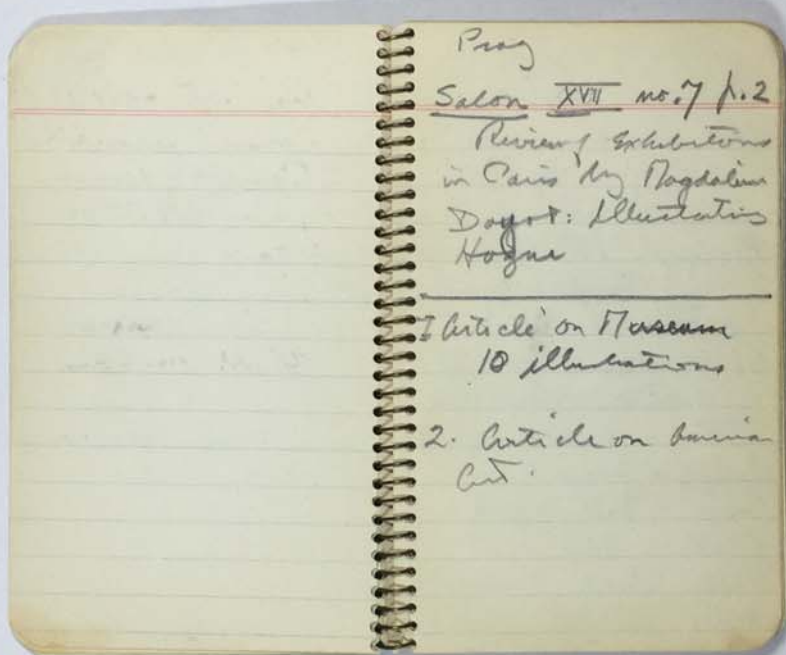 Prag
Salon XVII no. 7 p. 2
Review of Exhibitions
in Paris by Magdalene
Dayot: Illustrating
Hogue
I Article on Museum
10 illustrations
2. Article on American
Art.